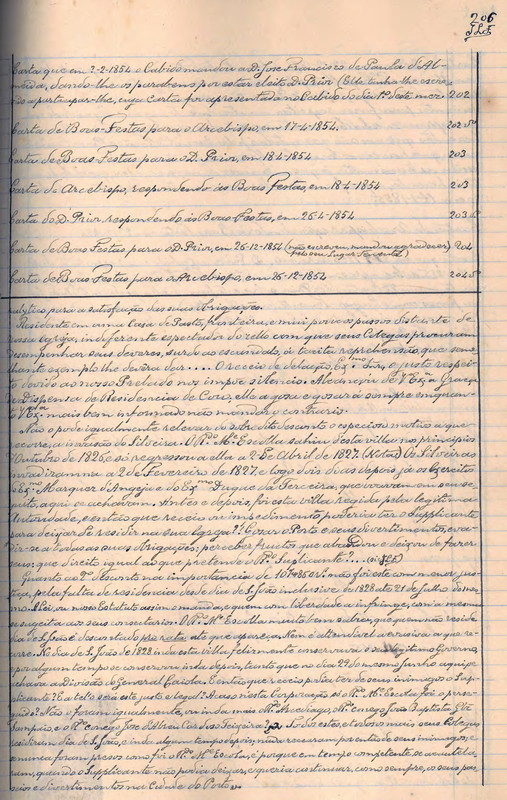 206
Carta que em 2-2-1854 o Cabido mandou a D. Jose Francisco de Paula de Al-
meida, dando-lhe os parabens por estar eleito D. Prior (Elle tinha-lhe escri-
to a participar-lhe, cuja carta foi apresentada no Cabido do dia 1º deste mez. 202
Carta de Boas-Festas para o Arcebispo, em 17-4-1854. 202
Carta de Boas Festas para o D. Prior, em 18-4-1854 203
Carta do Arcebispo, respondendo ás Boas Festas, em 18-4-1854 203
Carta do D. Prior, respondendo ás Boas-Festas, em 26-4-1854 203
Carta de Boas Festas para o D. Prior, em 26-12-1854 (não escreveu, mandou agradecer pelo seu Lugar Tenente) 204
Carta de Boas Festas para o Arcebispo, em 26-12-1854 204
para a satisfação das suas obrigações.
Residente em uma Casa de Pasto, fronteira, e mui poucos passos distante de
nossa Igreja, indiferente espectador do zello com que seus Collegas procuram
desempenhar seus deveres, surdo ao escandalo, á tacita reprehensão, que seme-
lhante exemplo lhe devera dar.... O receio de delação, Exmo Snr, e justo respei-
to devido ao nosso Prelado nos impõe silencio. Alcançou de V. Exª a Graça
e Dispensa de Residencia de Coro, elle a gosa e gosará sempre emquan-
to V. Exª mais bem informado não mandar o contrario.
Não o pode igualmente relevar do sobredito desconto o especioso motivo a que
recorre, invasão do Silveira. O Rdo Me Escolla sahiu desta villa nos principios
d'Outubro de 1826, e só regressou a ella a 2 de Abril de 1827. (Notas) Os Silveiras
a 2 de Fevereiro de 1827, e logo dois dias depois já os Exercitos
do Exmo Marquez d'Angeja e do Exmo Duque da Terceira, que vieram em seu se-
guito, aqui se acharam. Antes e depois, foi esta villa regida pela legitima
Autoridade, e então que receio ou impedimento poderia ter o Supplicante
para deixar de residir na sua Igreja?! Gosar o Porto e seus divertimentos, eva-
dir-se a todas as suas obrigações; perceber fructos que e deixou de fazer
seus, que direito igual ao que pretende o Rdo Suplicante?....
Quanto ao 2º desconto na importancia de não foi este com menor jus-
tiça, pela falta de residencia desde dia de S. João inclusive de 1828 até 21 de Julho do mes-
mo. A Lei, ou nosso Estatuto assim o manda, e quem com liberdade a infringe, com a mesma
se sugeita aos seus O Rdo Me Escolla muito bem sabe, que quem não reside
dia de S. João é descontado até que appareça. Nem é attendivel a evasiva a que re-
corre. No dia de S. João de 1828 inda esta villa felizmente conservava o Legitimo Governo
e por algum tempo se conservou inda depois, tanto que no dia 22 do mesmo Junho aqui pe-
chava a Divisão do General Então que receio podia ter de seus inimigos o Sup-
plicante? E até lo seria este justo e legal? Acaso nesta Corporação só o Rdo Me Escola foi o perse-
guido? Não o foram igualmente, ou inda mais o Rdo Arcediago, Rdo Conego João Baptista
Sampaio, e o Rdo Conego José d'Abreu Cardoso Teixeira? Todos estes, e todos os mais seus Collegas
residiram dia de S. João, e inda algum tempo depois;
e nunca foram presos como o foi o Rdo Me Escola, é porque em tempo competente se acautela-
ram, que isto o Supplicante não podia deixar, e queria continuar, como sempre, os seus pas-
seios e divertimentos na Cidade do Porto.